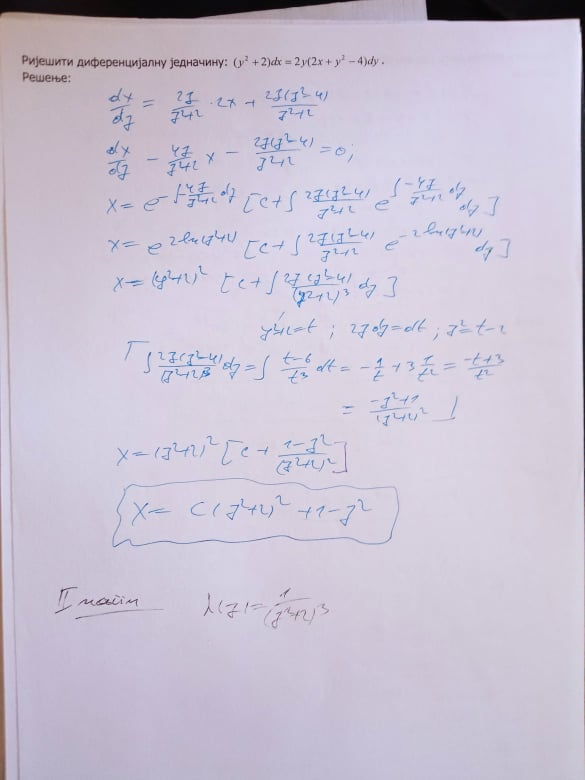 Ријешити диференцијалну једначину: (y² + 2)dx = 2y(2x + y² − 4)dy .
Решење:
dx/dy = 2y/(y²+2) · 2x + 2y(y²−4)/(y²+2)
dx/dy − 4y/(y²+2) x − 2y(y²−4)/(y²+2) = 0;
x = e^(−∫−4y/(y²+2) dy) [c + ∫ 2y(y²−4)/(y²+2) e^(∫−4y/(y²+2) dy) dy]
x = e^(2ln(y²+2)) [c + ∫ 2y(y²−4)/(y²+2) e^(−2ln(y²+2)) dy]
x = (y²+2)² [c + ∫ 2y(y²−4)/(y²+2)³ dy]
y²+2=t ; 2y dy = dt ; y² = t−2
⌈ ∫ 2y(y²−4)/(y²+2)³ dy = ∫ (t−6)/t³ dt = −1/t + 3 1/t² = (−t+3)/t²
= (−y²+1)/(y²+2)² ⌋
x = (y²+2)² [c + (1−y²)/(y²+2)²]
x = c(y²+2)² + 1 − y²
II начин λ(y) = 1/(y²+2)³